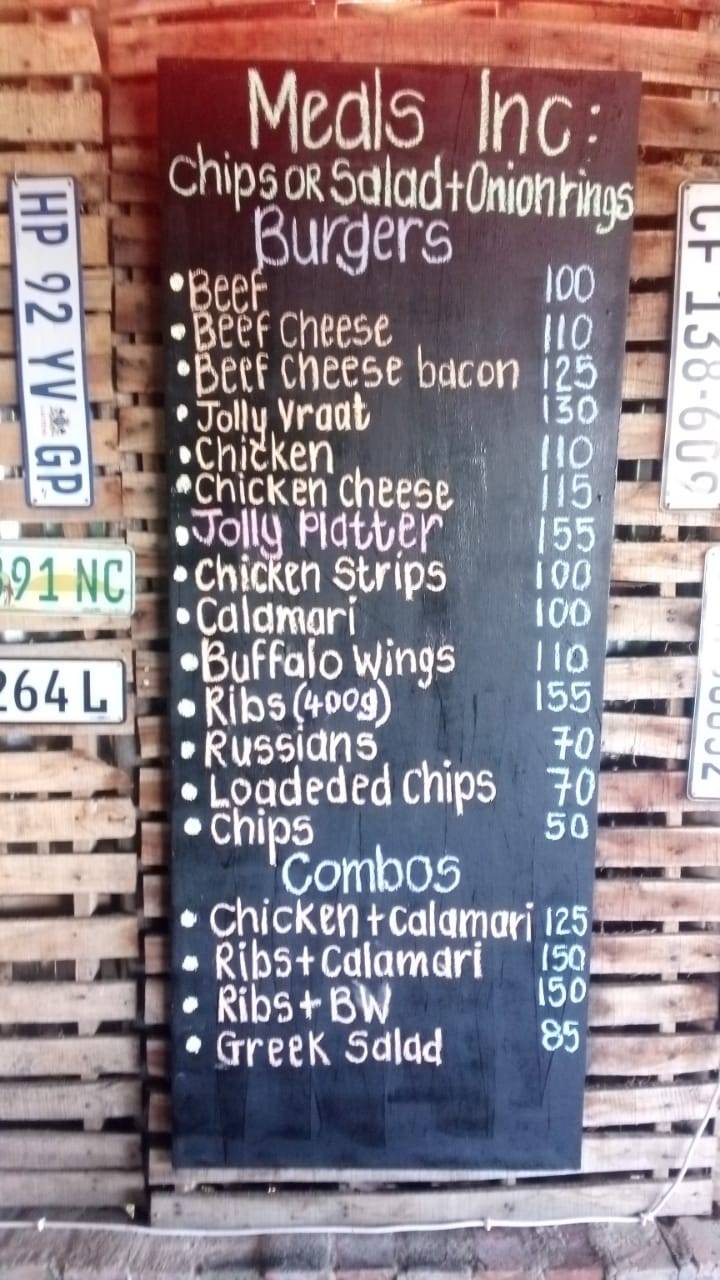 Meals Inc:
Chips OR Salad + Onion rings
Burgers
• Beef 100
• Beef Cheese 110
• Beef Cheese bacon 125
• Jolly Vraat 130
• Chicken 110
• Chicken Cheese 115
• Jolly Platter 155
• Chicken Strips 100
• Calamari 100
• Buffalo Wings 110
• Ribs (400g) 155
• Russians 70
• Loadeded Chips 70
• Chips 50
Combos
• Chicken + Calamari 125
• Ribs + Calamari 150
• Ribs + BW 150
• Greek Salad 85
HP 92 YV GP
91 NC
264 L
CF 138-609